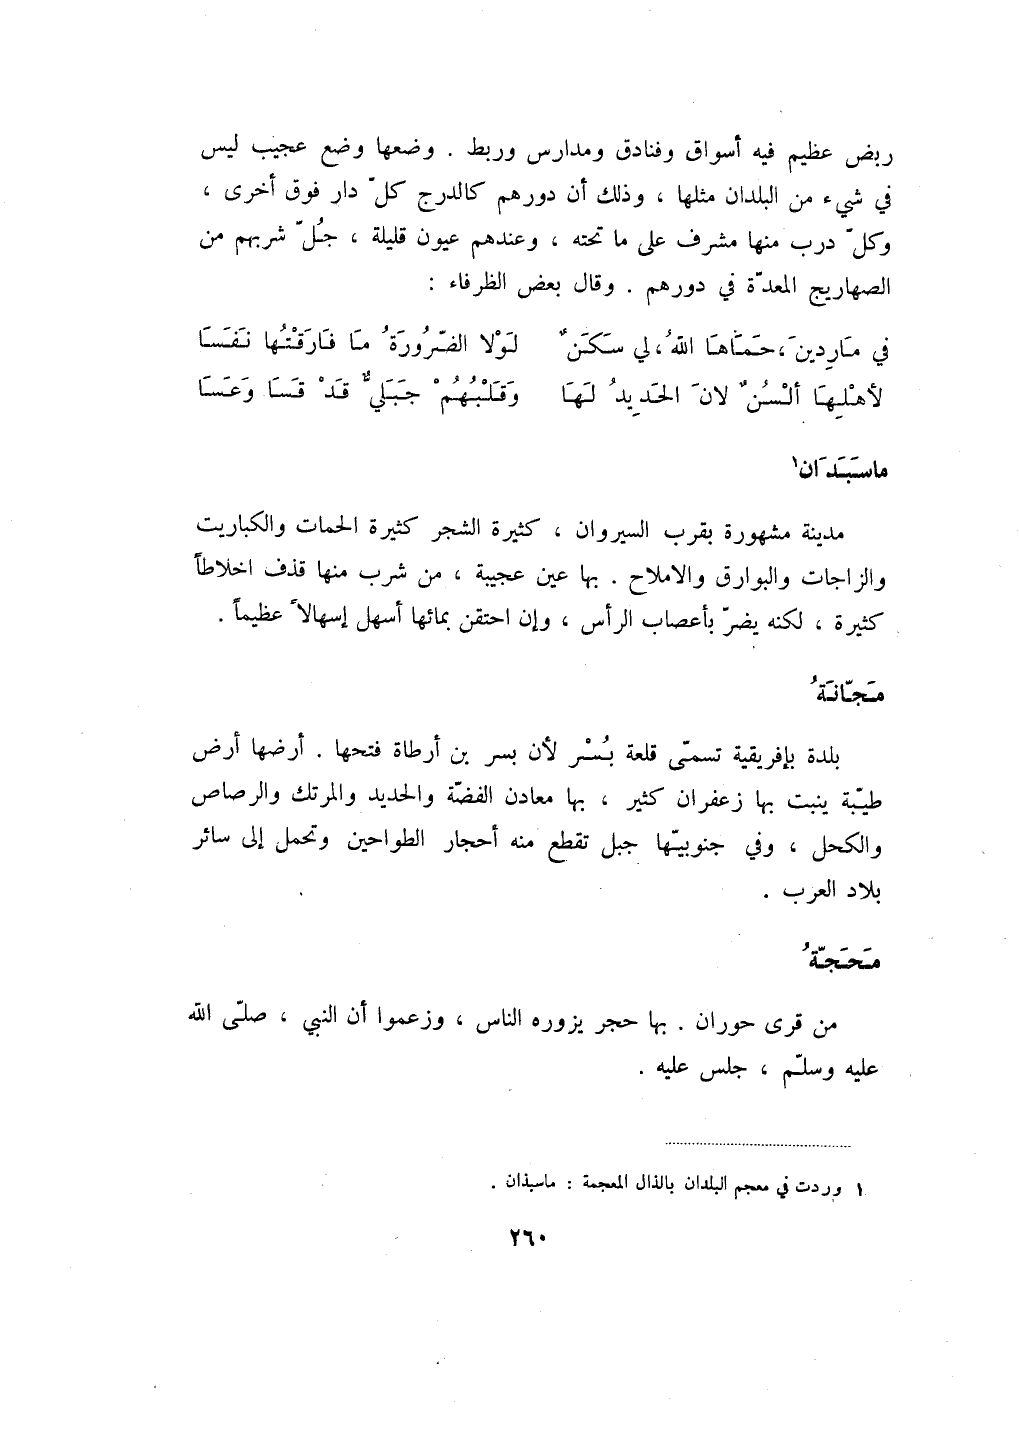 ربض عظيم فيه أسواق وفنادق ومدارس وربط . وضعها وضع عجيب ليس
في شيء من البلدان مثلها ، وذلك أن دورهم كالدرج كلّ دار فوق أخرى ،
وكلّ درب منها مشرف على ما تحته ، وعندهم عيون قليلة ، جُلّ شربهم من
الصهاريج المعدّة في دورهم . وقال بعض الظرفاء :
في مَارِدينَ ، حَمَاهَا اللهُ ، لي سَكَنٌ لَوْلا الضّرُورَةُ مَا فَارَقْتُها نَفَسَا
لأهْلِهَا ألْسُنٌ لانَ الحَدِيدُ لَهَا وَقَلْبُهُمْ جَبَليٌّ قَدْ قَسَا وَعَسَا
ماسَبَدَان١
مدينة مشهورة بقرب السيروان ، كثيرة الشجر كثيرة الحمات والكباريت
والزاجات والبوارق والاملاح . بها عين عجيبة ، من شرب منها قذف اخلاطاً
كثيرة ، لكنه يضرّ بأعصاب الرأس ، وإن احتقن بمائها أسهل إسهالاً عظيماً .
مَجّانَةُ
بلدة بإفريقية تسمّى قلعة بُسْر لأن بسر بن أرطاة فتحها . أرضها أرض
طيّبة ينبت بها زعفران كثير ، بها معادن الفضّة والحديد والمرتك والرصاص
والكحل ، وفي جنوبيّها جبل تقطع منه أحجار الطواحين وتحمل إلى سائر
بلاد العرب .
مَحَجّةُ
من قرى حوران . بها حجر يزوره الناس ، وزعموا أن النبي ، صلّى الله
عليه وسلّم ، جلس عليه .
١ وردت في معجم البلدان بالذال المعجمة : ماسبذان .
٢٦٠